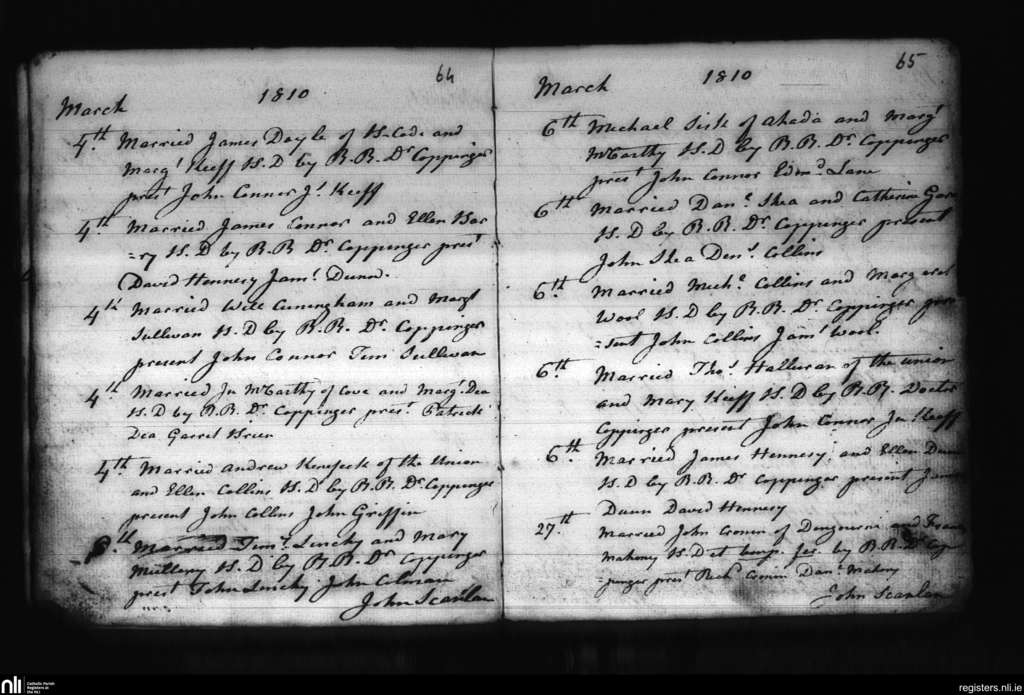 64
March 1810
4th Married James Doyle of H.Code and
Margt Keeff H.D by R.R. Dr Coppinger
prest John Connor Js Keeff
4th Married James Connor and Ellen Bar
=ry H.D by R.R Dr Coppenger prest
David Hennesy Jams Dunn.
4th Married Will Cuningham and Margt
Sullivan H.D by R.R. Dr Coppinger
present John Connor Tim Sullivan
4th Married Jn McCarthy of Cove and Margt Dea
H.D by R.R. Dr Coppenger prest Patrick
Dea Garret Brien
4th Married Andrew of the Union
and Ellen Collins H.D by R.R. Dr Coppenger
present John Collins John Griffin
th Married Timy Linchy and Mary
Mullony H.D by R.R. Dr Coppenger
prest John Linchy John Colman
John Scanlan
65
March 1810
6th Mechael Sisk of Ahada and Margt
McCarthy H.D by R.R. Dr Coppenger
prest John Connor Edmd Lane
6th Married Danl Shea and Catherine
H.D by R.R. Dr Coppenger present
John Shea Denl Collins
6th Married Mechl Collins and Margaret
Wool H.D by R.R. Dr Coppinger pre
=sent John Collins Jams Wool.
6th Married Thos Halluran of the union
and Mary Keeff H.D by R.R. Docter
Coppinger present John Connor Jn Keeff
6th Married James Hennesy and Ellen Dunn
H.D by R.R. Dr Coppenger present James
Dunn David Hennesy
27th Married John Cronin of and
Mahony H.D by R.R. Dr Cop
=penger prest Richd Cronin Danl Mahony
John Scanlan
nli Catholic Parish
Registers at
the NLI
registers.nli.ie